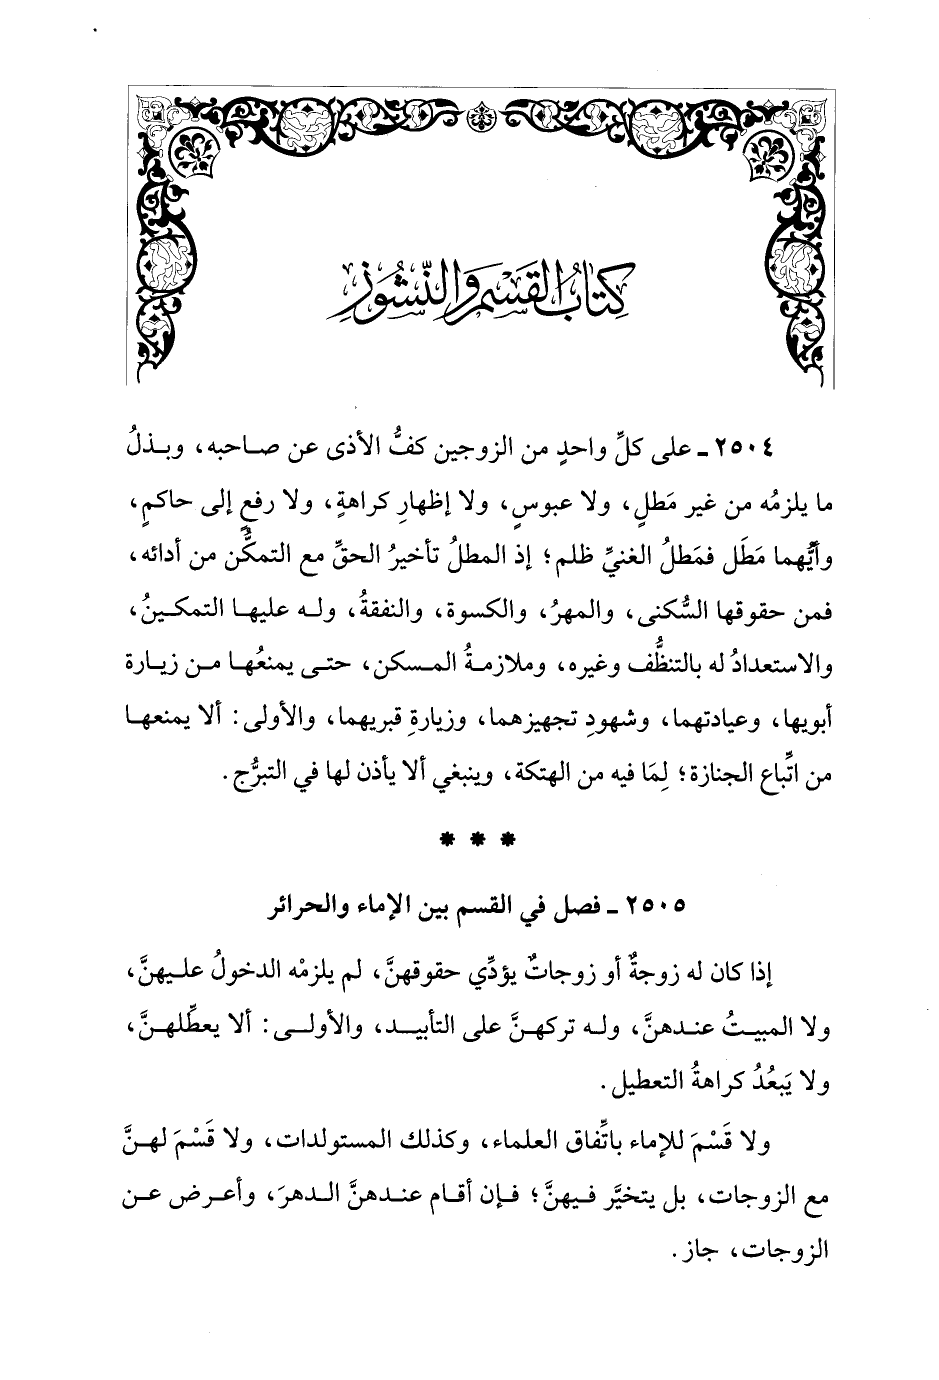 كِتَابُ القَسْمِ وَالنُّشُوزِ
٢٥٠٤ ـ على كلِّ واحدٍ من الزوجين كفُّ الأذى عن صاحبه، وبذلُ
ما يلزمُه من غير مَطلٍ، ولا عبوسٍ، ولا إظهارِ كراهةٍ، ولا رفعٍ إلى حاكمٍ،
وأيُّهما مَطَل فمَطلُ الغنيِّ ظلم؛ إذ المطلُ تأخيرُ الحقِّ مع التمكُّن من أدائه،
فمن حقوقها السُّكنى، والمهرُ، والكسوة، والنفقةُ، وله عليها التمكينُ،
والاستعدادُ له بالتنظُّف وغيره، وملازمةُ المسكن، حتى يمنعُها من زيارة
أبويها، وعيادتهما، وشهودِ تجهيزهما، وزيارةِ قبريهما، والأولى: ألا يمنعها
من اتِّباع الجنازة؛ لِمَا فيه من الهتكة، وينبغي ألا يأذن لها في التبرُّج.
* * *
٢٥٠٥ ـ فصل في القسم بين الإماء والحرائر
إذا كان له زوجةٌ أو زوجاتٌ يؤدِّي حقوقهنَّ، لم يلزمْه الدخولُ عليهنَّ،
ولا المبيتُ عندهنَّ، وله تركهنَّ على التأبيد، والأولى: ألا يعطِّلهنَّ،
ولا يَبعُدُ كراهةُ التعطيل.
ولا قَسْمَ للإماء باتِّفاق العلماء، وكذلك المستولدات، ولا قَسْمَ لهنَّ
مع الزوجات، بل يتخيَّر فيهنَّ؛ فإن أقام عندهنَّ الدهرَ، وأعرض عن
الزوجات، جاز.